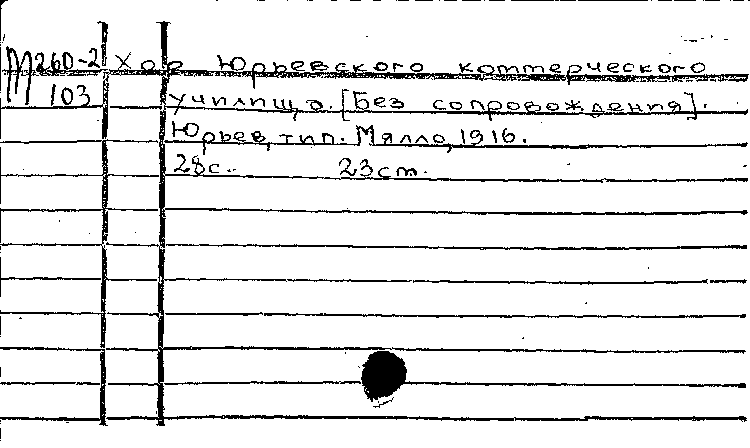 М260-2 Хор Юрьевского коммерческого
103 училища. [Без сопровождения].
Юрьев, тип. Мялло, 1916.
28с. 23cm.